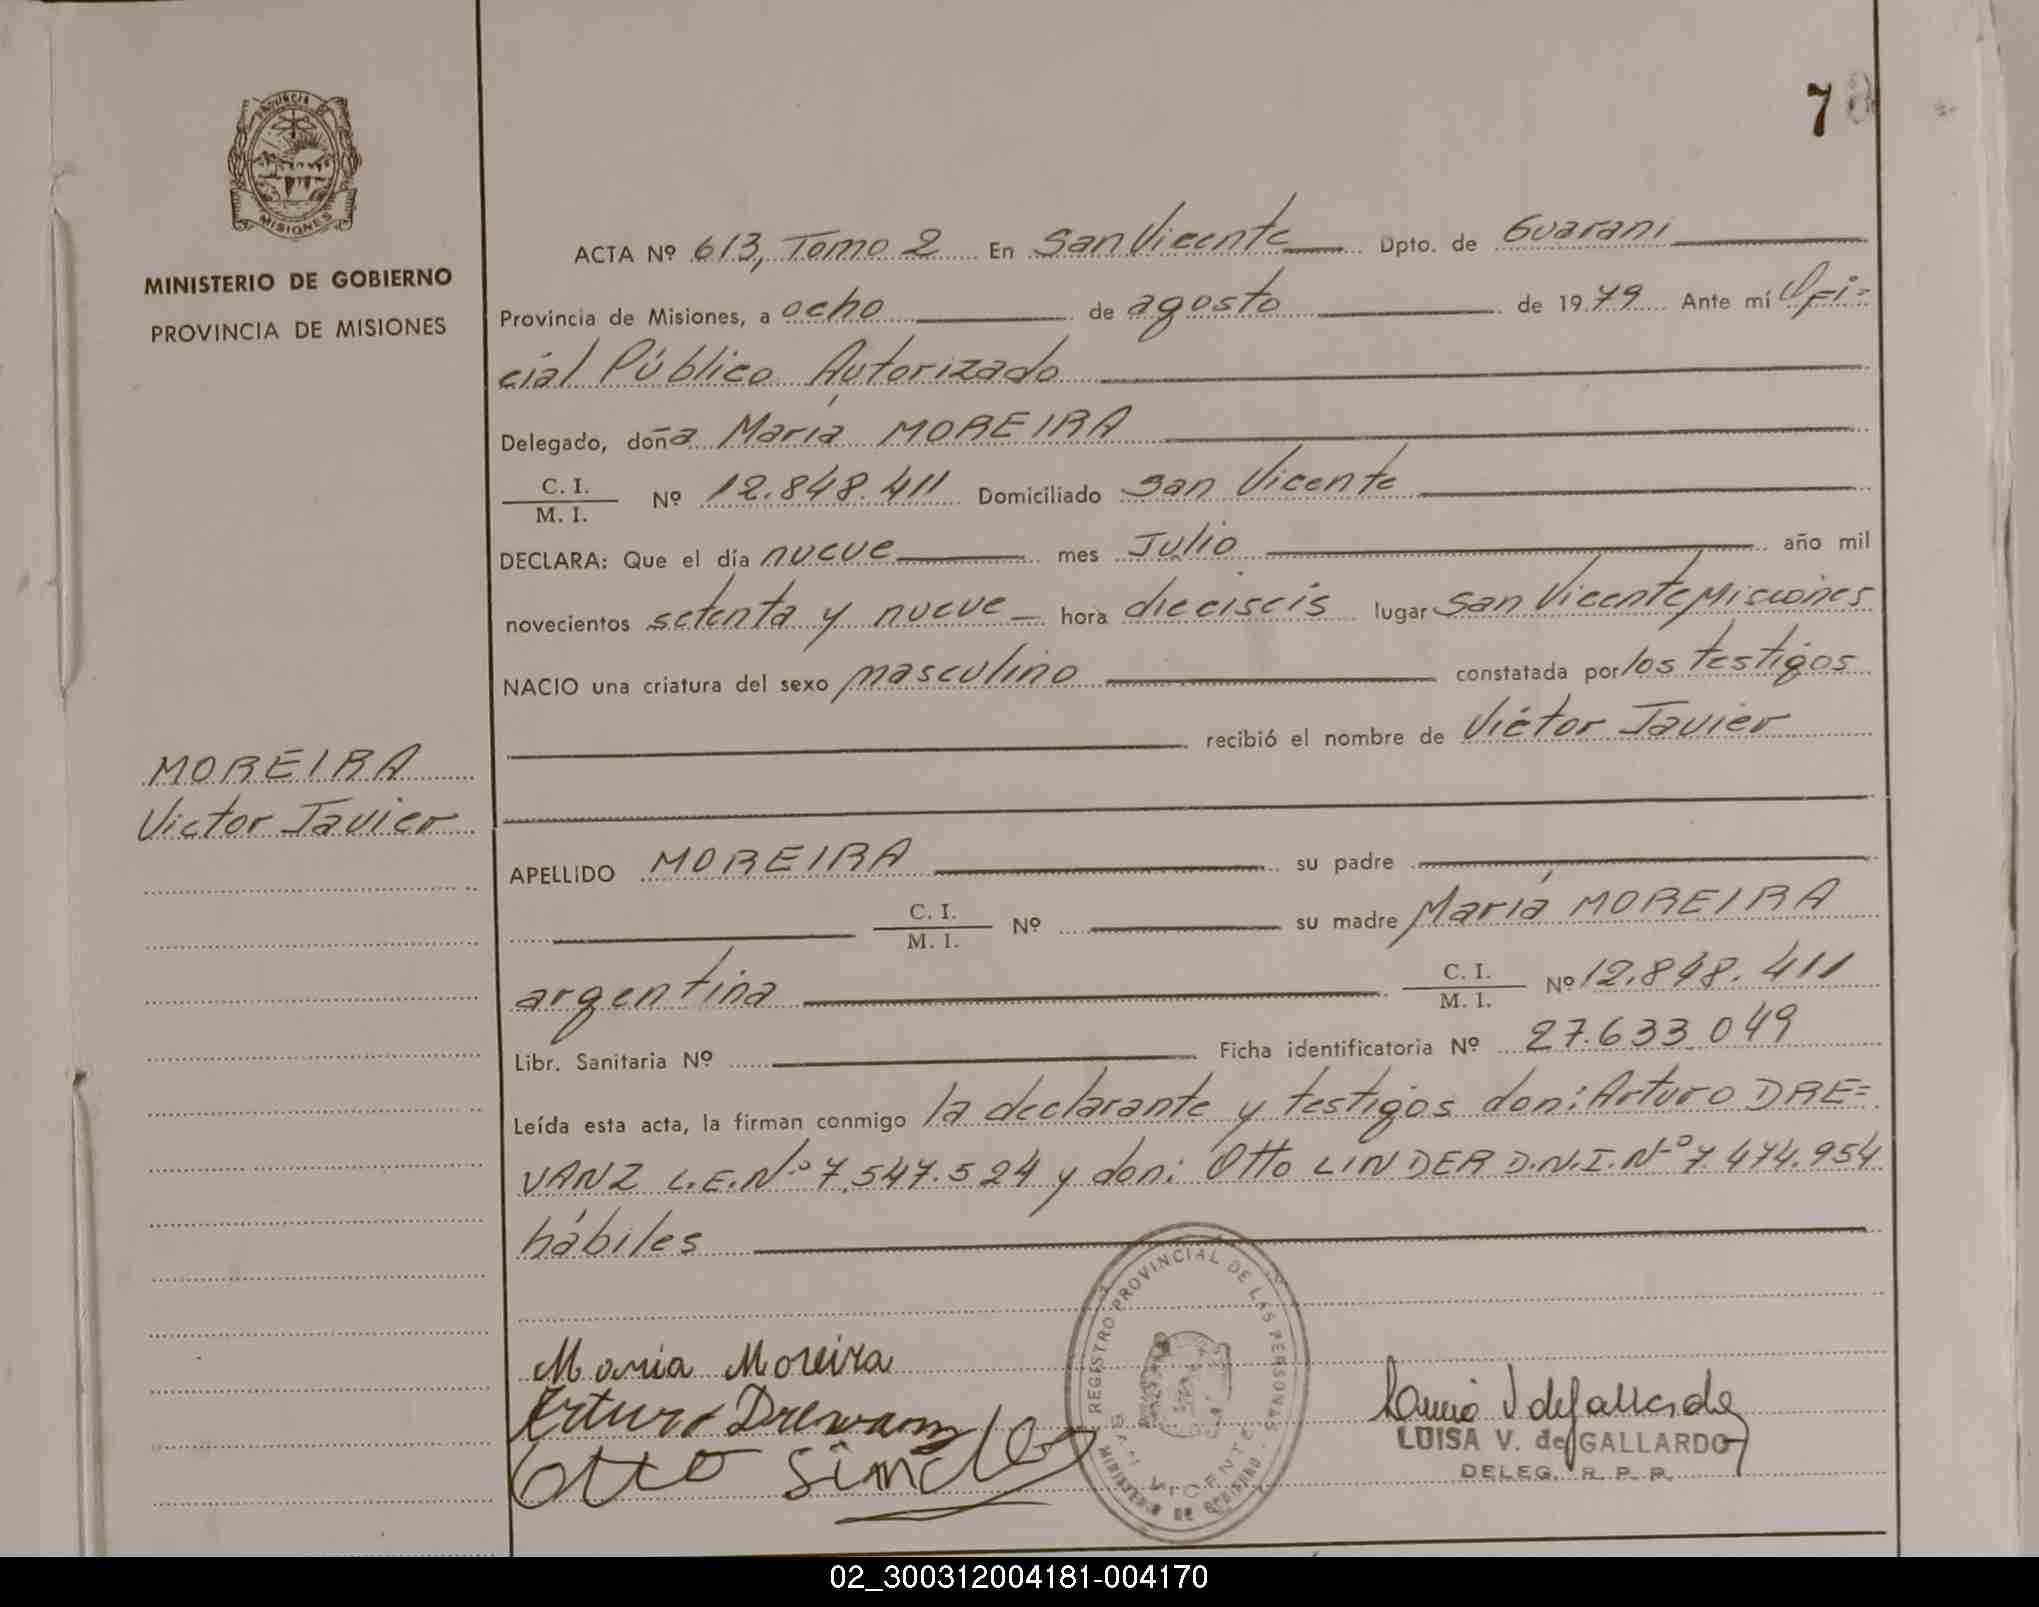 7
PROVINCIA
MISIONES
MINISTERIO DE GOBIERNO
PROVINCIA DE MISIONES
ACTA Nº 613, Tomo 2 En San Vicente Dpto. de Guarani
Provincia de Misiones, a ocho de agosto de 1979 Ante mí Ofi=
cial Público Autorizado
Delegado, doña María MOREIRA
C. I.
M. I. Nº 12.848.411 Domiciliado San Vicente
DECLARA: Que el día nueve mes Julio año mil
novecientos setenta y nueve hora dieciseis lugar San Vicente, Misiones
NACIO una criatura del sexo masculino constatada por los testigos
recibió el nombre de Victor Javier
MOREIRA
Victor Javier
APELLIDO MOREIRA su padre
C. I.
M. I. Nº su madre María MOREIRA
argentina C. I.
M. I. Nº 12.848.411
Libr. Sanitaria Nº Ficha identificatoria Nº 27.633.049
Leída esta acta, la firman conmigo la declarante y testigos don: Arturo DRE=
VANZ L.E.Nº 7.547.524 y don: Otto LINDER D.N.I.Nº 7.474.954
hábiles
Maria Moreira
Arturo Drewanz
Otto
REGISTRO PROVINCIAL DE LAS PERSONAS
SAN VICENTE
MINISTERIO DE GOBIERNO
LUISA V. de GALLARDO
DELEG. R. P. P.
02_300312004181-004170